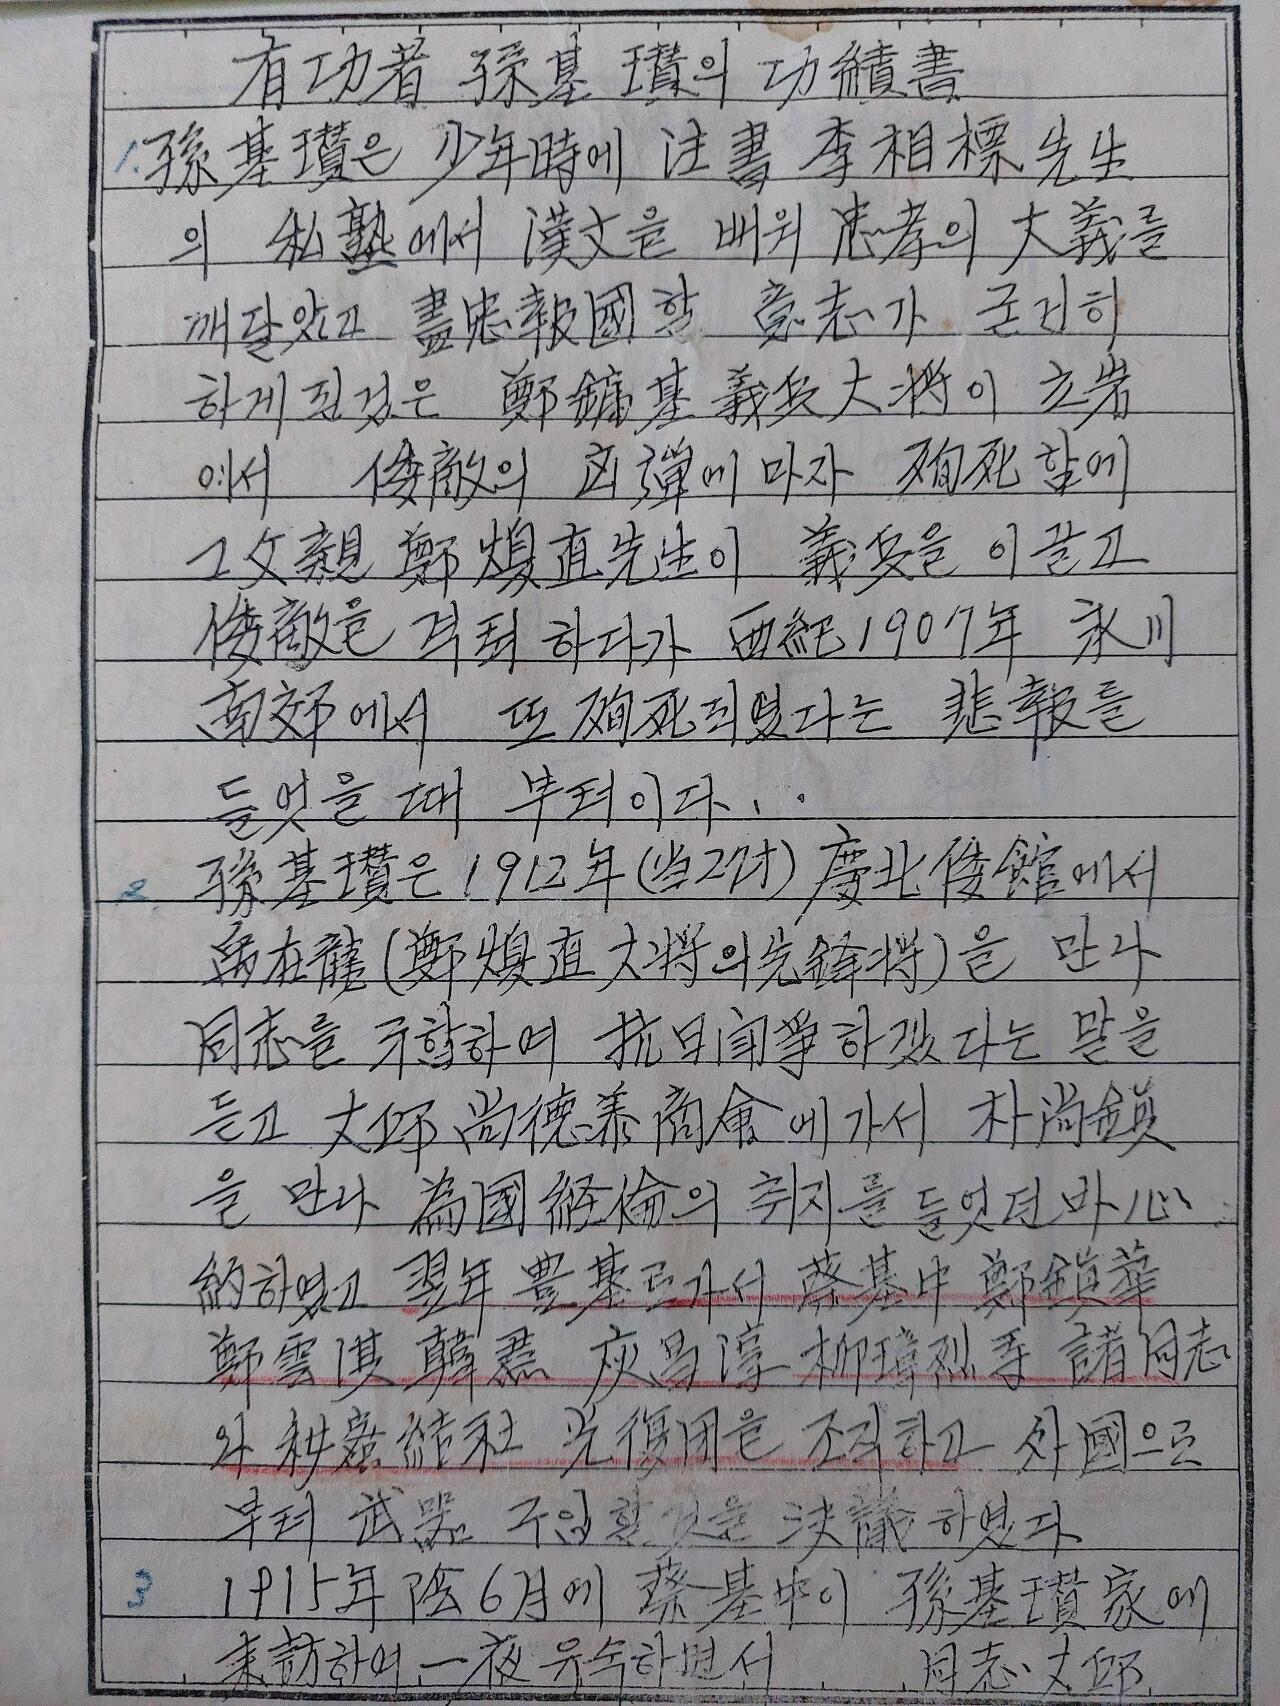 有功者 孫基瓚의 功績書
1. 孫基瓚은 少年時에 注書 李相標先生
의 私塾에서 漢文을 배워 忠孝의 大義를
깨달았고 盡忠報國할 意志가 굳건히
하게된것은 鄭鏞基義兵大將이 立岩
에서 倭敵의 凶彈에마자 殉死함에
그父親 鄭煥直先生이 義兵을 이끌고
倭敵을 격퇴하다가 西紀1907年 永川
南郊에서 또 殉死되였다는 悲報를
들엇을 때 부터이다..
2. 孫基瓚은 1912年(当27才) 慶北倭館에서
禹在龍(鄭煥直大將의先鋒將)을 만나
同志를 규합하여 抗日闘爭하겠다는 말을
듣고 大邱 尚德泰商會에가서 朴尚鎮
을 만나 為國経倫의 취지를 들엇던바 心
約하였고 翌年 豊基로가서 蔡基中 鄭鎮華
鄭雲淇 韓焄 庾昌淳 柳璋烈等 諸同志
와 秘密結社 光復団을 조직하고 外國으로
부터 武器 구입할것을 決議하였다
3 1915年 陰6月에 蔡基中이 孫基瓚家에
来訪하여 一夜 유숙하면서 同志 大邱